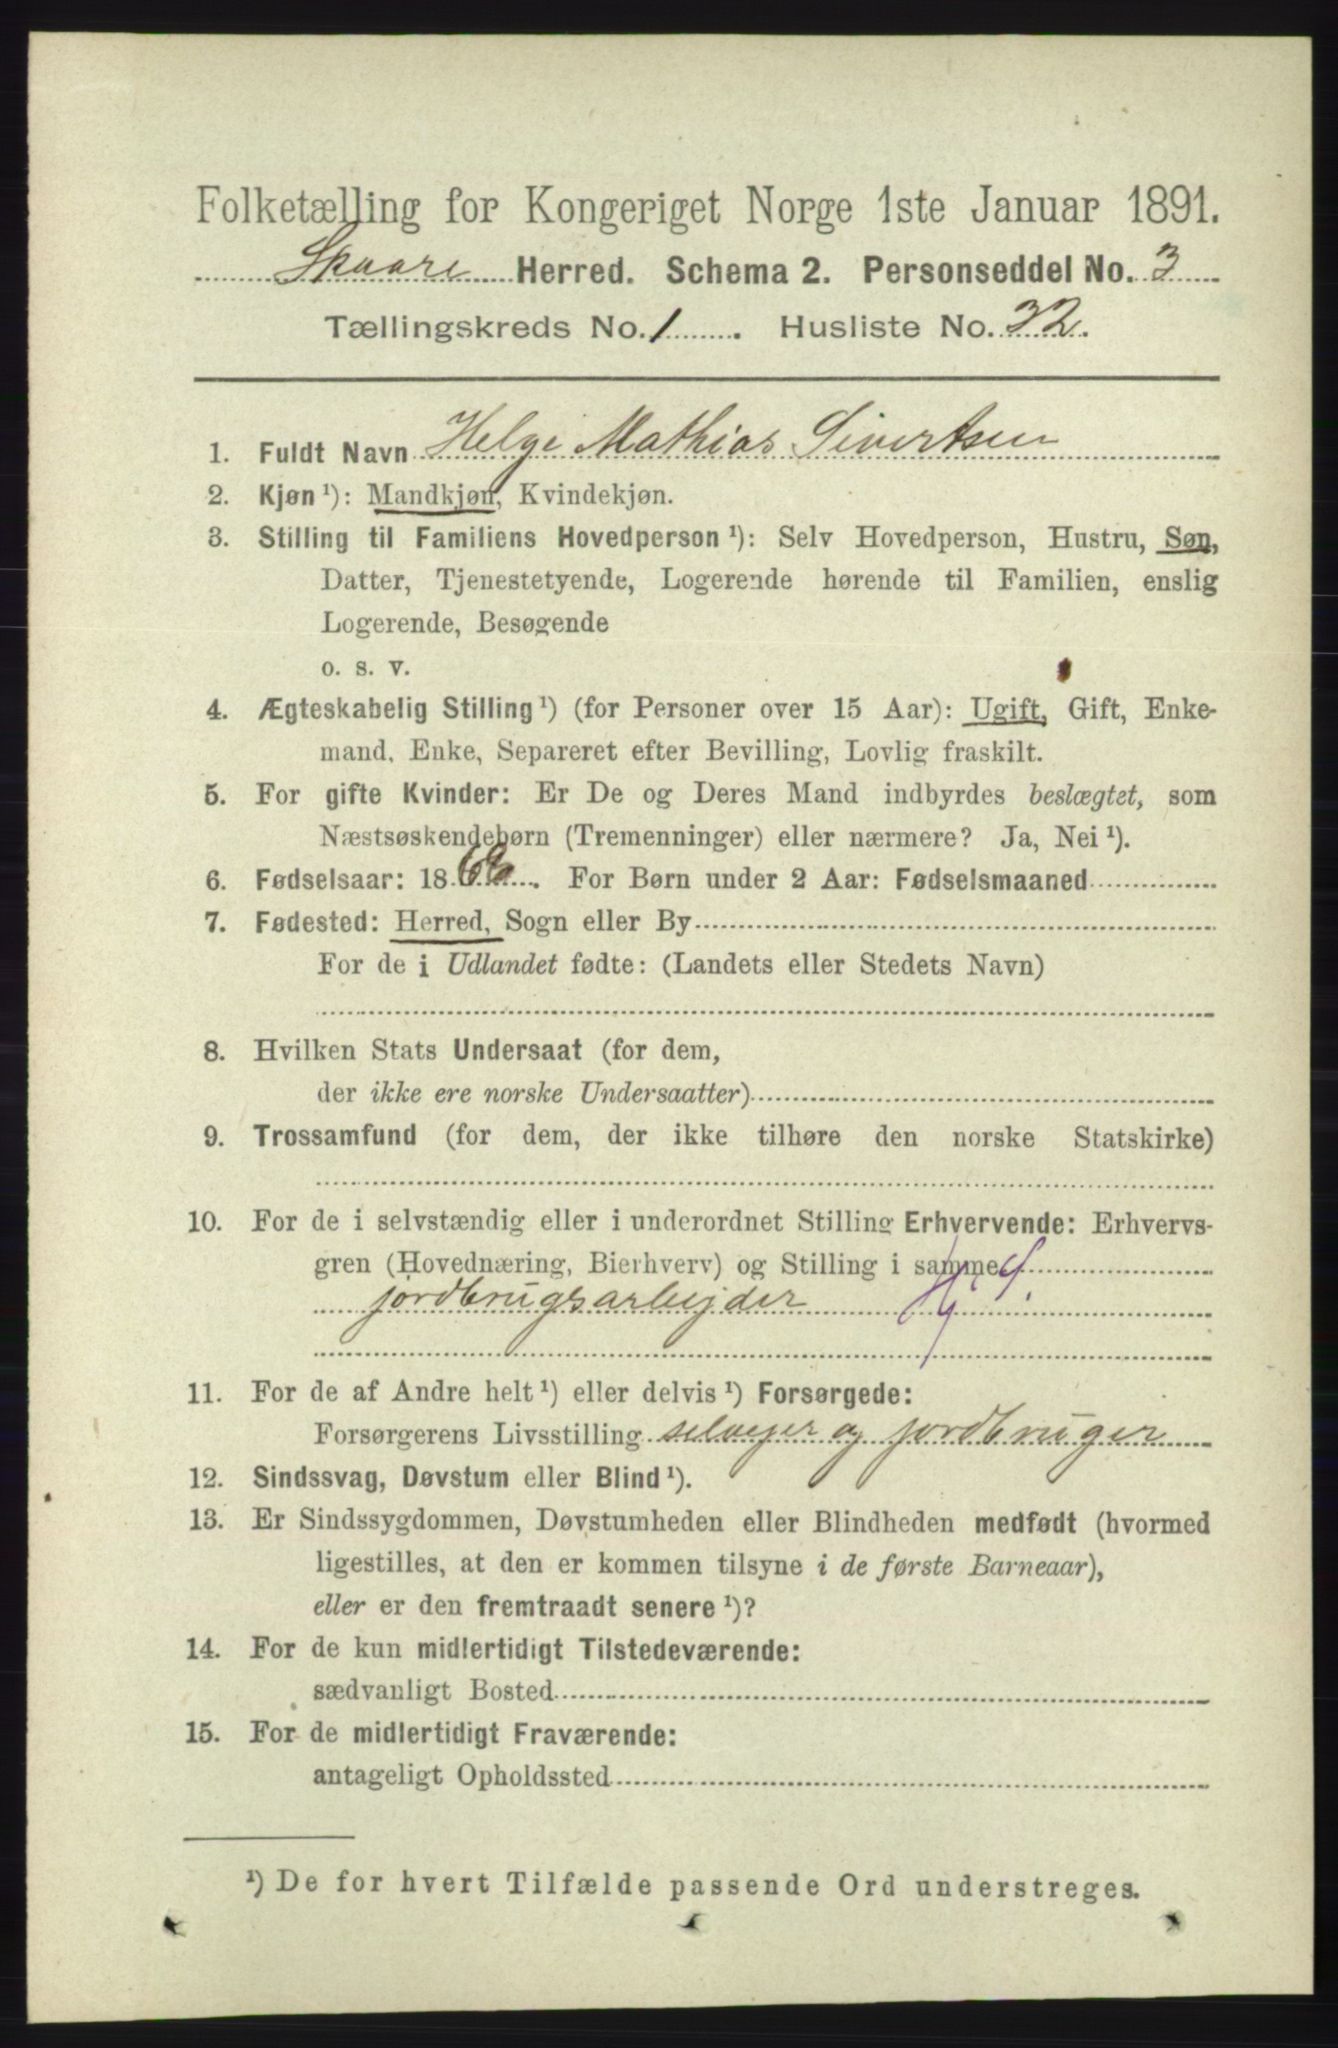 Folketælling for Kongeriget Norge 1ste Januar 1891.
Skaare Herred. Schema 2. Personseddel No. 3
Tællingskreds No. 1. Husliste No. 32.
1. Fuldt Navn Helge Mathias Sivertsen
2. Kjøn ¹): Mandkjøn, Kvindekjøn.
3. Stilling til Familiens Hovedperson ¹): Selv Hovedperson, Hustru, Søn,
Datter, Tjenestetyende, Logerende hørende til Familien, enslig
Logerende, Besøgende
o. s. v.
4. Ægteskabelig Stilling ¹) (for Personer over 15 Aar): Ugift, Gift, Enke-
mand, Enke, Separeret efter Bevilling, Lovlig fraskilt.
5. For gifte Kvinder: Er De og Deres Mand indbyrdes beslægtet, som
Næstsøskendebørn (Tremenninger) eller nærmere? Ja, Nei ¹).
6. Fødselsaar: 18 . For Børn under 2 Aar: Fødselsmaaned
7. Fødested: Herred, Sogn eller By
For de i Udlandet fødte: (Landets eller Stedets Navn)
8. Hvilken Stats Undersaat (for dem,
der ikke ere norske Undersaatter)
9. Trossamfund (for dem, der ikke tilhøre den norske Statskirke)
10. For de i selvstændig eller i underordnet Stilling Erhvervende: Erhvervs-
gren (Hovednæring, Bierhverv) og Stilling i samme
jordbrugsarbejder
11. For de af Andre helt ¹) eller delvis ¹) Forsørgede:
Forsørgerens Livsstilling selvejer og jordbruger
12. Sindssvag, Døvstum eller Blind ¹).
13. Er Sindssygdommen, Døvstumheden eller Blindheden medfødt (hvormed
ligestilles, at den er kommen tilsyne i de første Barneaar),
eller er den fremtraadt senere ¹)?
14. For de kun midlertidigt Tilstedeværende:
sædvanligt Bosted
15. For de midlertidigt Fraværende:
antageligt Opholdssted
¹) De for hvert Tilfælde passende Ord understreges.